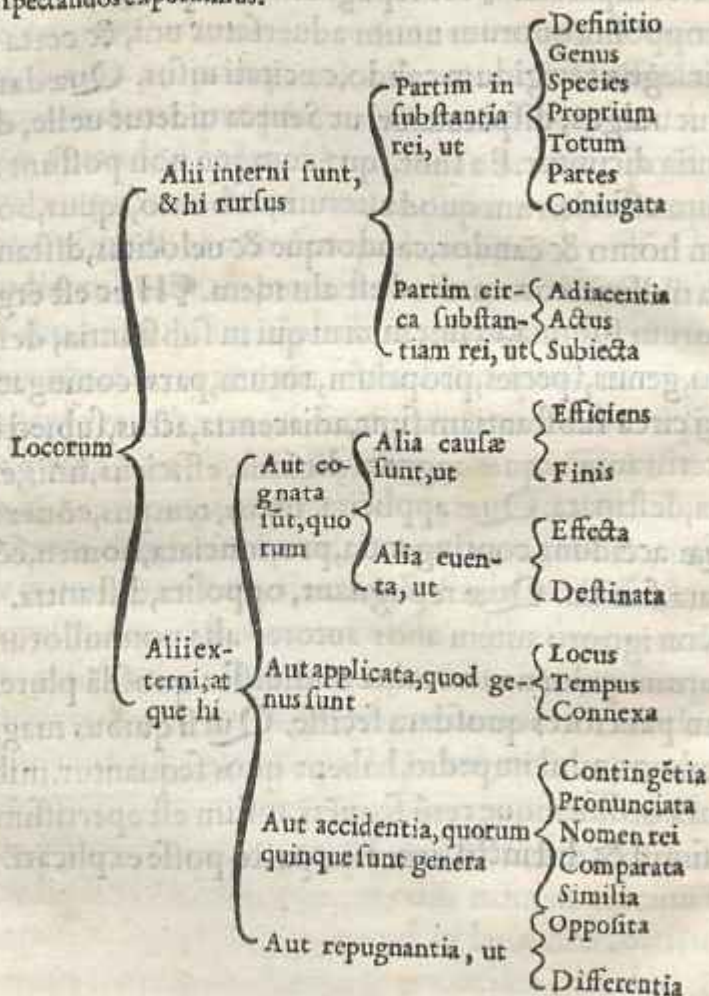 Locorum
Alii interni sunt,
& hi rursus
Partim in
substantia
rei, ut
Definitio
Genus
Species
Proprium
Totum
Partes
Coniugata
Partim cir-
ca substan-
tiam rei, ut
Adiacentia
Actus
Subiecta
Alii ex-
terni, at
que hi
Aut co-
gnata
sūt, quo
rum
Alia causæ
sunt, ut
Efficiens
Finis
Alia euen-
ta, ut
Effecta
Destinata
Aut applicata, quod ge-
nus sunt
Locus
Tempus
Connexa
Aut accidentia, quorum
quinque sunt genera
Contingētia
Pronunciata
Nomen rei
Comparata
Similia
Aut repugnantia, ut
Opposita
Differentia